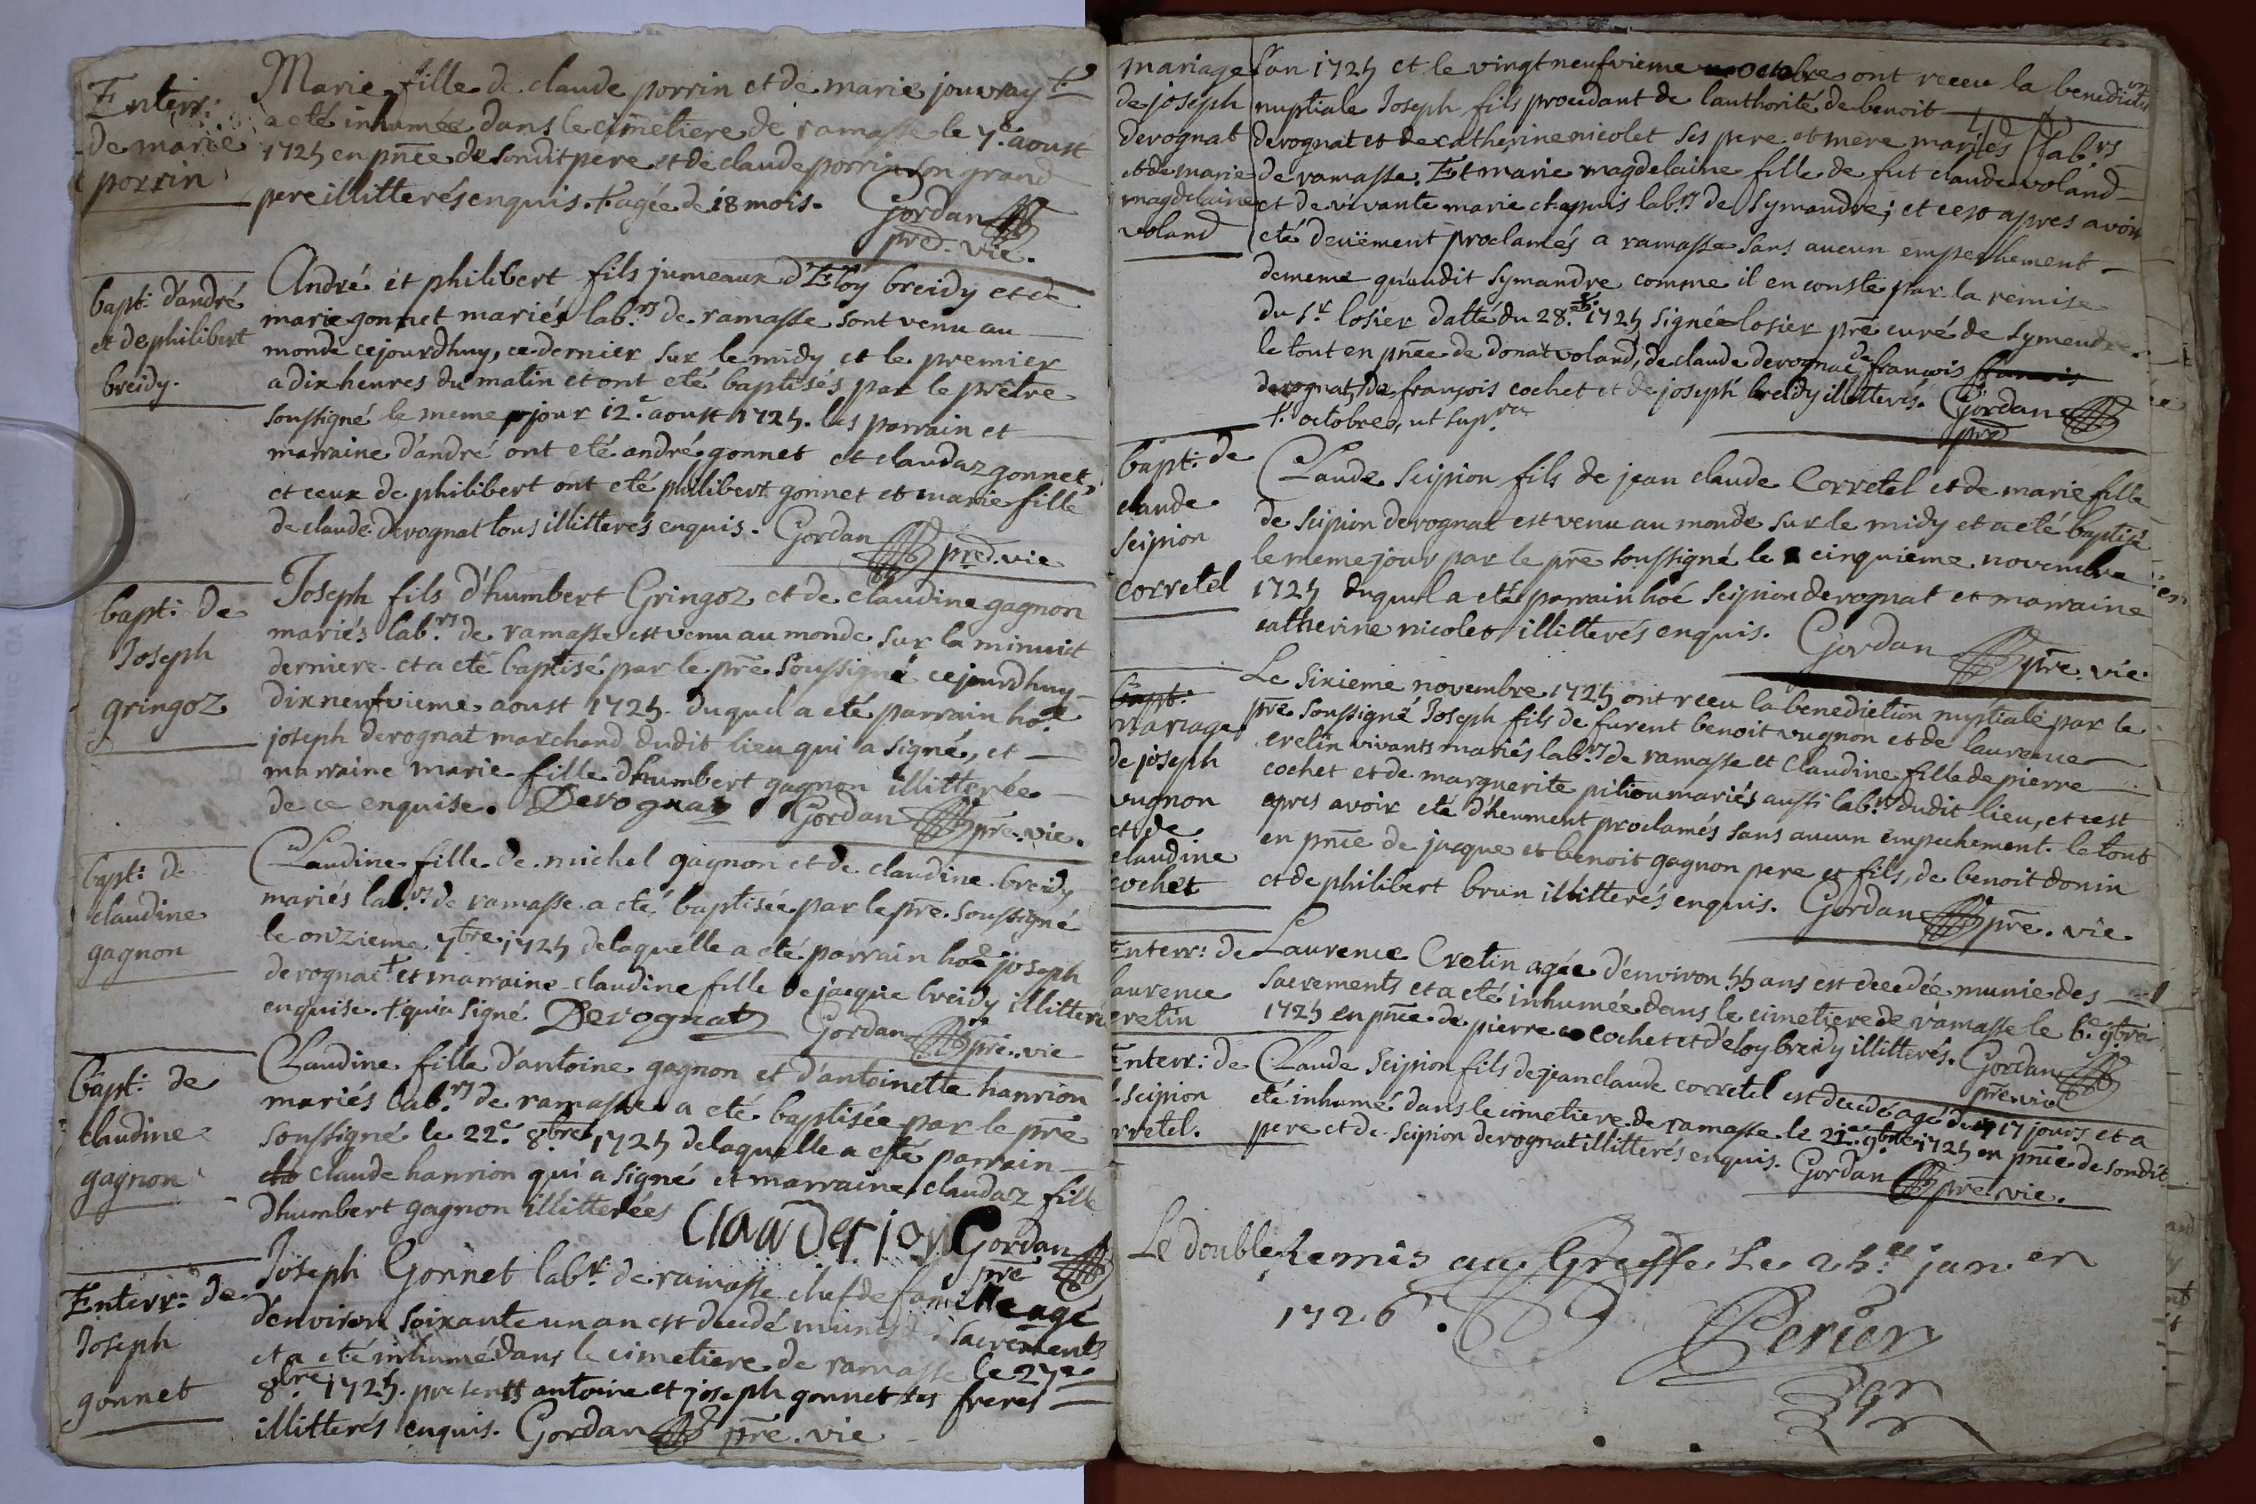 Enterr:
de marie
porrin
Marie fille de claude porrin et de marie jouvray +
a eté inhumée dans le cimetiere de ramasse le 7.e aoust
1725 en pñce de sondit pere et de claude porrin son grand
pere illitterés enquis. + agée de 18 mois. Gordan
pred. vic.
bapt: d'andré
et de philibert
breidy.
André et philibert fils jumeaux d'Eloy breidy et de
marie gonnet mariés lab.rs de ramasse sont venu au
monde cejourdhuy, ce dernier sur le midy et le premier
a dix heures du matin et ont eté baptisés par le prêtre
soussigné le meme jour 12.e aoust 1725. les parrain et
marraine d'andré ont eté andré gonnet et claudaz gonnet,
et ceux de philibert ont eté philibert gonnet et marie fille
de claude derognat tous illitterés enquis. Gordan
pred. vic
bapt: de
Joseph
gringoz
Joseph fils d'humbert Gringoz et de claudine gagnon
mariés lab.rs de ramasse est venu au monde sur la minuict
derniere et a eté baptisé par le pre. soussigné cejourdhuy
dixneufvieme aoust 1725. duquel a eté parrain hoé
joseph derognat marchand dudit lieu qui a signé, et
marraine marie fille d'humbert gagnon illitterée
de ce enquise. Derognat Gordan pre. vic.
bapt: de
claudine
gagnon
Claudine fille de michel gagnon et de claudine breidy
mariés lab.rs de ramasse a eté baptisée par le pre. soussigné
le onzieme 7bre. 1725 de laquelle a eté parrain hoé joseph
derognat + et marraine claudine fille de jacque breidy illitteré
enquise. + qui a signé Derognat Gordan pre. vic
Bapt: de
claudine
gagnon
Claudine fille d'antoine gagnon et d'antoinette hanrion
mariés lab.rs de ramasse a eté baptisée par le pre
soussigné le 22.e 8bre. 1725 de laquelle a eté parrain
claude hanrion qui a signé et marraine claudaz fille
d'humbert gagnon illitterées Gordan
pre
Enterr: de
Joseph
gonnet
Joseph Gonnet lab.r de ramasse chef de famille agé
d'environ soixante un an est decedé muni des sacrements
et a eté inhumé dans le cimetiere de ramasse le 27.e
8bre 1725. presents antoine et joseph gonnet ses freres
illitterés enquis. Gordan pre. vic
mariage
de joseph
derognat
et de marie
magdelaine
voland
l'an 1725 et le vingtneufvieme octobre ont receu la benediction
nuptiale Joseph fils procedant de l'authorité de benoit
derognat et de catherine nicolet ses pere et mere mariés lab.rs
de ramasse. Et marie magdelaine fille de fut claude voland
et de vivante marie chapuis lab.rs de Symandre; et ce apres avoir
eté deuëment proclamés a ramasse sans aucun empeschement
de meme qu'audit Symandre comme il en conste par la remise
du s.r losier datté du 28.e + 1725 signée losier pre curé de Symandre.
le tout en pñce de donat voland, de claude derognat, de francois
derognat, de françois cochet et de joseph breidy illitterés. Gordan
+ octobre, ut supra
pre
bapt: de
claude
scipion
corretel
Claude Scipion fils de jean claude Corretel et de marie fille
de scipion derognat est venu au monde sur le midy et a eté baptisé
le meme jour par le pre soussigné le cinquieme novembre
1725 duquel a eté parrain hoé scipion derognat et marraine
catherine nicolet illitterés enquis. Gordan pre. vic.
Bapt:
mariage
de joseph
vugnon
et de
claudine
cochet
Le sixieme novembre 1725 ont receu la benediction nuptiale par le
pre soussigné Joseph fils de furent benoit vugnon et de laurence
cretin vivants mariés lab.rs de ramasse et Claudine fille de pierre
cochet et de marguerite pitiou mariés aussi lab.rs dudit lieu, et c'est
apres avoir eté d'heument proclamés sans aucun empechement. le tout
en pñce de jacque et benoit gagnon pere et fils, de benoit donin
et de philibert brun illitterés enquis. Gordan pre. vic.
Enterr: de
laurence
cretin
Laurence Cretin agée d'environ 55 ans est decedée munie des
sacrements et a eté inhumée dans le cimetiere de ramasse le 6.e 9bre
1725 en pñce de pierre cochet et d'eloy breidy illitterés. Gordan
pre. vic
Enterr: de
scipion
rretel.
Claude Scipion fils de jean claude corretel est decedé agé de 17 jours et a
eté inhumé dans le cimetiere de ramasse le 21.e 9bre 1725 en pñce de sondit
pere et de scipion derognat illitterés enquis. Gordan pre. vic.
Le double Remis au Greffe Le 25.e jan.er
1726.
Perier